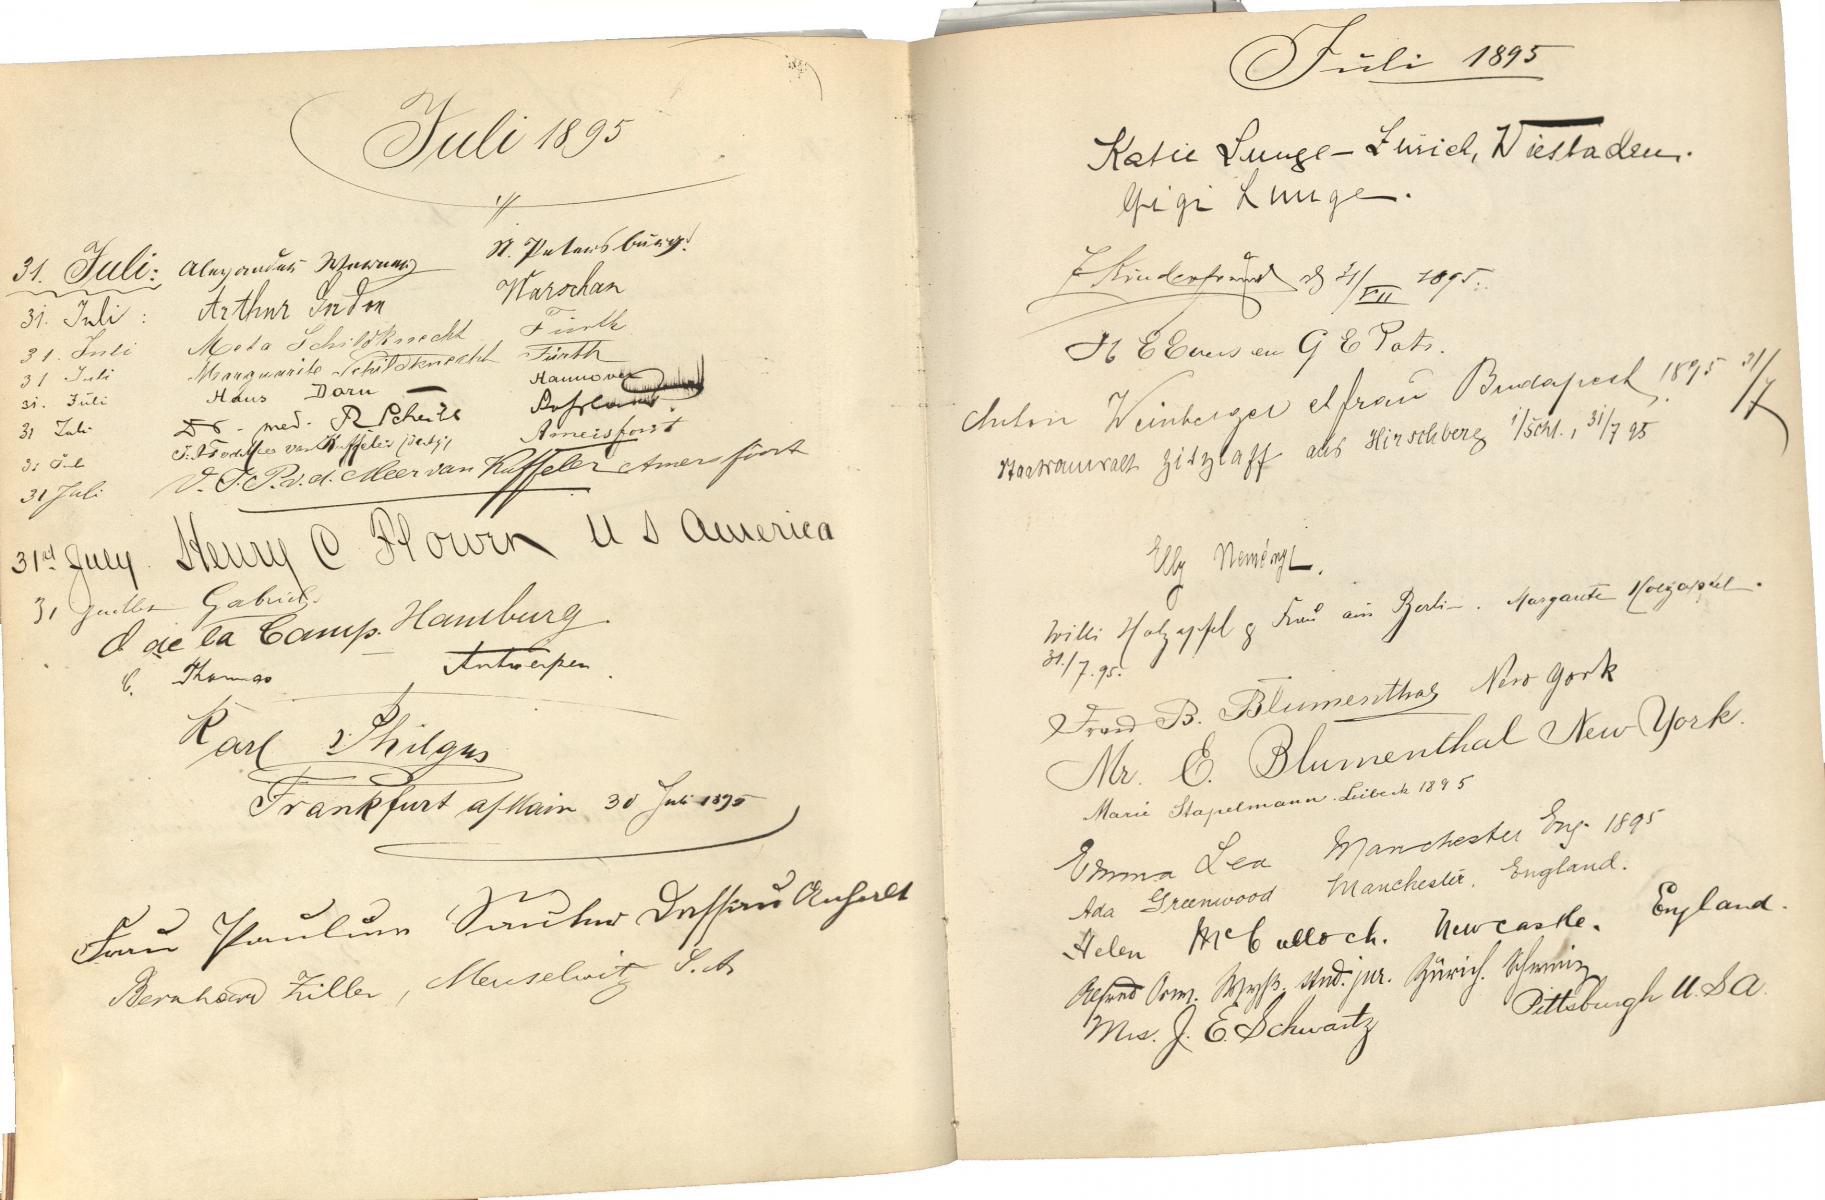 Juli 1895
31. Juli: Alexander St. Petersburg.
31. Juli: Arthur Warschau
31. Juli Meta Schildknecht Fürth
31 Juli Marguerite Schildknecht Fürth
31. Juli Hans Dorn Hannover
31 Juli Dr. med. R Russland.
31 Juli van Amersfoort
31 Juli V. J. P. v. d. Meer van Kuffeler Amersfoort
31st July. Henry C U S America
31 Juillet Gabriel
O de la Camp. Hamburg.
C. Thomas Antwerpen.
Karl
Frankfurt a/Main 30 Juli 1895
Frau Dessau Anhalt
Bernhard Ziller, Meuselwitz S. A
Juli 1895
Katie Lunge - Zürich, Wiesbaden.
Gigi Lunge.
J Kinderfreund 31/VII 1895.
H E Evers en G E Pots.
Anton Weinberger et frau Budapest 1895 31/7
Staatsanwalt Zitzlaff aus Hirschberg i/Schl., 31/7 95
Elly
Willi Holzapfel & Frau aus Berlin. Margarete Holzapfel.
31./7.95.
Fred B. Blumenthal New York
Mr. E. Blumenthal New York.
Marie Stapelmann 1895
Emma Lea Manchester Eng. 1895
Ada Greenwood Manchester. England.
Helen McCulloch. Newcastle. England.
Alfred Wyß. stud. jur. Zürich. Schweiz
Mrs. J. E. Schwartz Pittsburgh U.S.A.